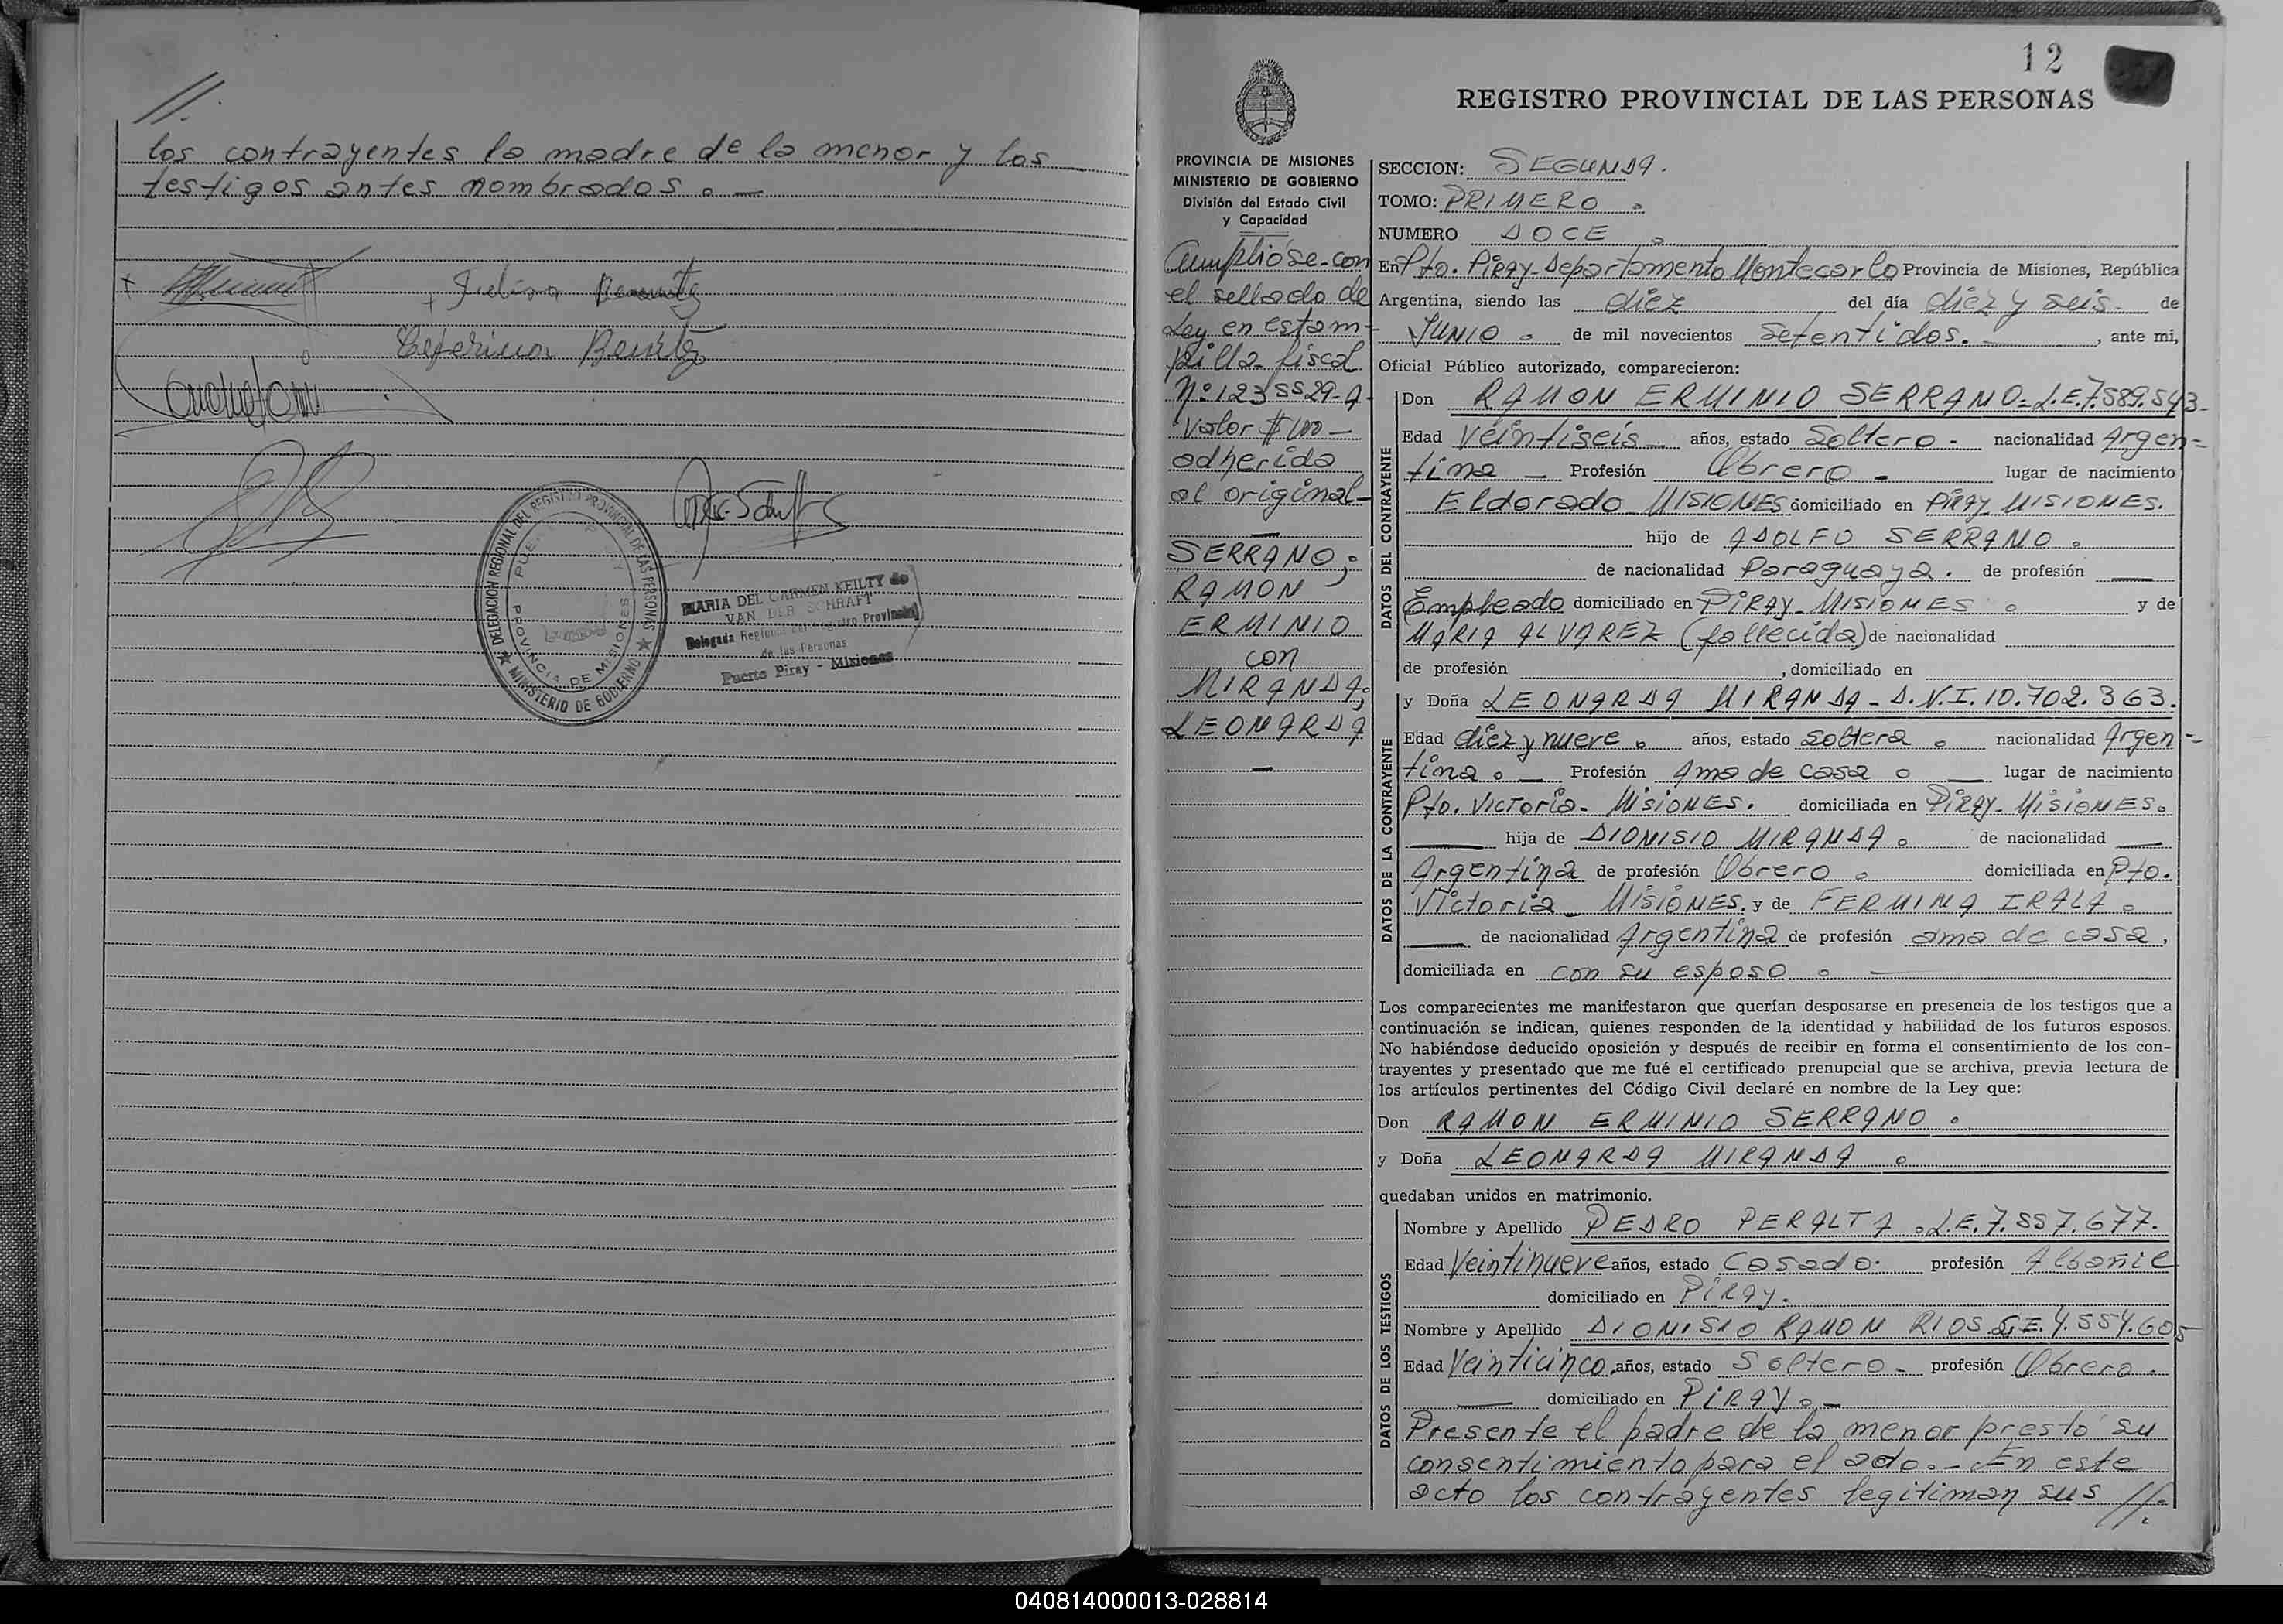 //.
los contrayentes la madre de la menor y los
testigos antes nombrados. —
Julian Benitez
Ceferina Benitez
DELEGACION REGIONAL DEL REGISTRO PROVINCIAL DE LAS PERSONAS
★ MINISTERIO DE GOBIERNO ★
PROVINCIA DE MISIONES
MARIA DEL CARMEN KEILTY de
VAN DER SCHRAFT
Delegada Regional del Registro Provincial
de las Personas
Puerto Piray - Misiones
12
REGISTRO PROVINCIAL DE LAS PERSONAS
PROVINCIA DE MISIONES
MINISTERIO DE GOBIERNO
División del Estado Civil
y Capacidad
Cumplióse con
el sellado de
Ley en estam-
pilla fiscal
Nº 1235529-A
Valor $ 1,00 —
adherida
al original —
SERRANO;
RAMON
ERMINIO
con
MIRANDA;
LEONARDA
—
SECCION: SEGUNDA.
TOMO: PRIMERO.
NUMERO DOCE.
En Pto. Piray-Departamento Montecarlo Provincia de Misiones, República
Argentina, siendo las diez del día diez y seis. de
JUNIO. de mil novecientos Setentidos. , ante mi,
Oficial Público autorizado, comparecieron:
DATOS DEL CONTRAYENTE
Don RAMON ERMINIO SERRANO- L.E.7.589.543-
Edad Veintiseis años, estado Soltero - nacionalidad Argen-
tina — Profesión Obrero - lugar de nacimiento
Eldorado MISIONES domiciliado en PIRAY MISIONES.
hijo de ADOLFO SERRANO.
de nacionalidad Paraguaya. de profesión —
Empleado domiciliado en PIRAY-MISIONES. y de
MARIA ALVAREZ (fallecida) de nacionalidad
de profesión , domiciliado en
DATOS DE LA CONTRAYENTE
y Doña LEONARDA MIRANDA - D.N.I. 10.702.363.
Edad diez y nueve. años, estado Soltera. nacionalidad Argen-
tina. — Profesión Ama de casa. — lugar de nacimiento
Pto. VICTORIA- MISIONES. domiciliada en PIRAY-MISIONES.
— hija de DIONISIO MIRANDA. de nacionalidad —
Argentina de profesión Obrero. domiciliada en Pto.
Victoria - MISIONES. y de FERMINA IRALA.
— de nacionalidad Argentina de profesión ama de casa,
domiciliada en con su esposo. —
Los comparecientes me manifestaron que querían desposarse en presencia de los testigos que a
continuación se indican, quienes responden de la identidad y habilidad de los futuros esposos.
No habiéndose deducido oposición y después de recibir en forma el consentimiento de los con-
trayentes y presentado que me fué el certificado prenupcial que se archiva, previa lectura de
los artículos pertinentes del Código Civil declaré en nombre de la Ley que:
Don RAMON ERMINIO SERRANO.
y Doña LEONARDA MIRANDA.
quedaban unidos en matrimonio.
DATOS DE LOS TESTIGOS
Nombre y Apellido PEDRO PERALTA. L.E. 7.557.677.
Edad Veintinueve años, estado Casado. profesión Albañil
domiciliado en PIRAY.
Nombre y Apellido DIONISIO RAMON RIOS L.E. 4.554.605
Edad Veinticinco años, estado Soltero - profesión Obrero.
— domiciliado en PIRAY. —
Presente el padre de la menor prestó su
consentimiento para el acto. - En este
acto los contrayentes legitiman sus //.
040814000013-028814